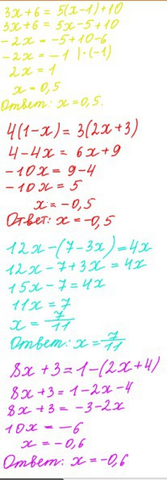 3x+6 = 5(x-1)+10
3x+6 = 5x-5+10
-2x = -5+10-6
-2x = -1 | ·(-1)
2x = 1
x = 0,5
Ответ: x = 0,5.
4(1-x) = 3(2x+3)
4-4x = 6x+9
-10x = 9-4
-10x = 5
x = -0,5
Ответ: x = -0,5
12x-(7-3x)=4x
12x-7+3x = 4x
15x-7 = 4x
11x = 7
x = 7/11
Ответ: x = 7/11
8x+3 = 1-(2x+4)
8x+3 = 1-2x-4
8x+3 = -3-2x
10x = -6
x = -0,6
Ответ: x = -0,6